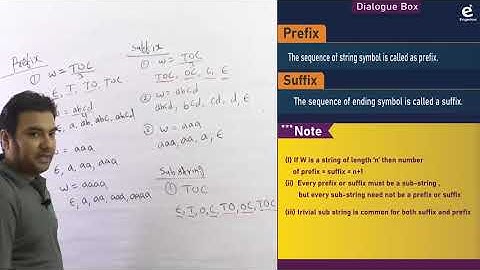 Prefix
① w = TOC
ε, T, TO, TOC
w = abcd
ε, a, ab, abc, abcd
w = aaa
ε, a, aa, aaa
w = aaaa
ε, a, aa, aaa, aaaa
Suffix
① w = TOC
TOC, OC, C, ε
② w = abcd
abcd, bcd, cd, d, ε
③ w = aaa
aaa, aa, a, ε
Substring
① TOC
ε, T, O, C, TO, OC, TOC
Dialogue Box
Prefix
The sequence of string symbol is called as prefix.
Suffix
The sequence of ending symbol is called a suffix.
***Note
(i) If W is a string of length 'n' then number
of prefix = suffix = n+1
(ii) Every prefix or suffix must be a sub-string ,
but every sub-string need not be a prefix or suffix
(iii) trivial sub string is common for both suffix and prefix